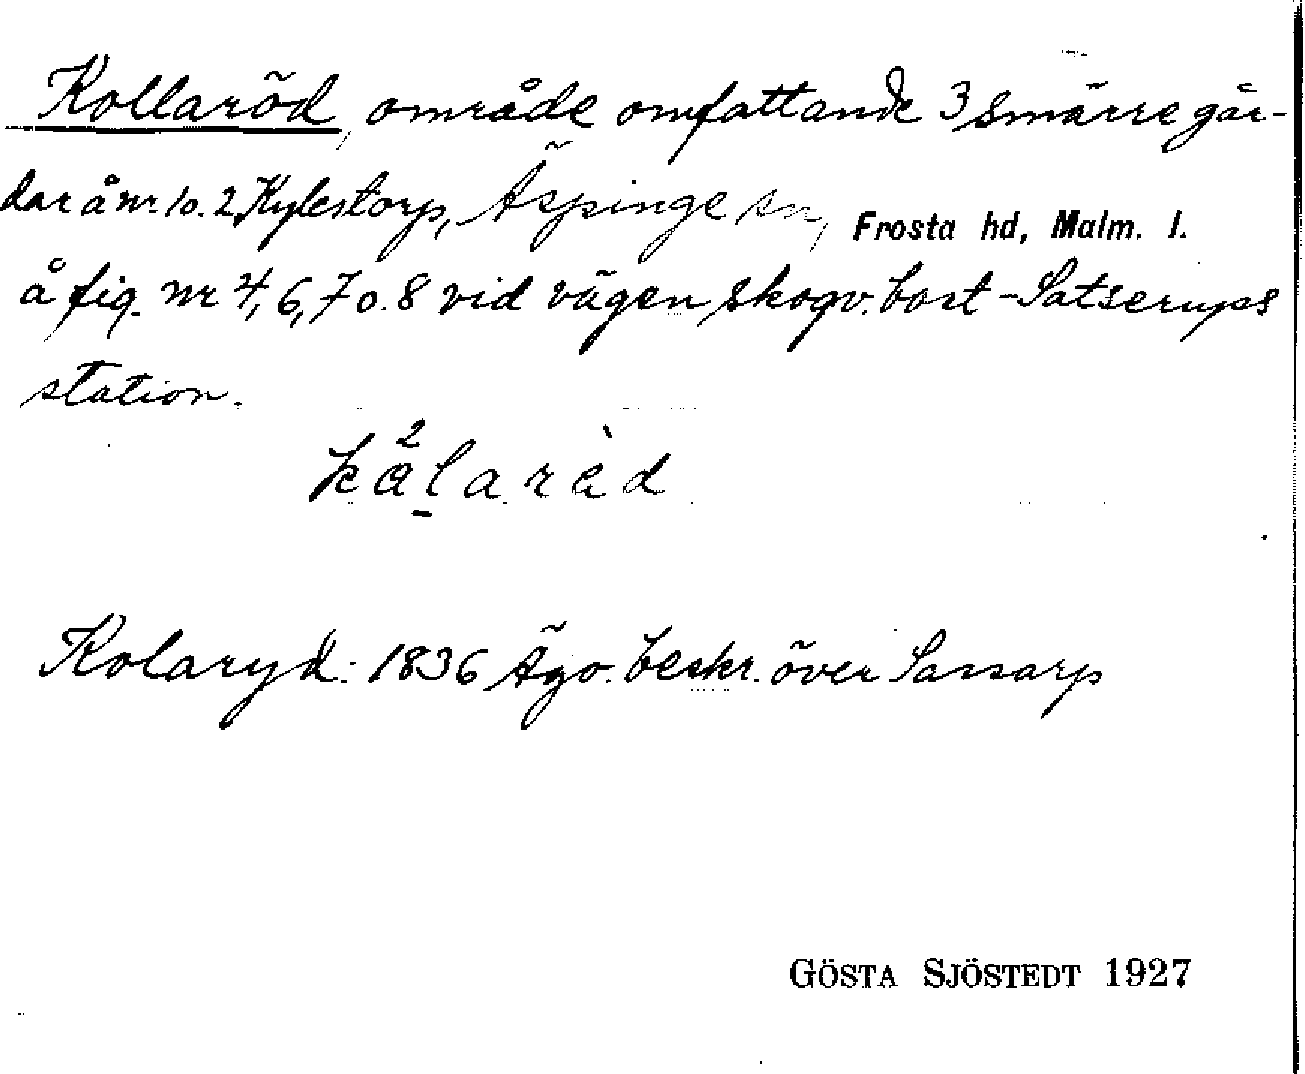 Kollaröd, område omfattande 3 smärre går-
dar å nr. 1 o. 2 Kylestorp, Äspinge sn, Frosta hd, Malm. l.
å fig. nr 4, 6, 7 o. 8 vid vägen skogv. bost - Satserups
station.
kå²laràd
Kolaryd: 1836 Ägo. beskr. över Sassarp
GÖSTA SJÖSTEDT 1927